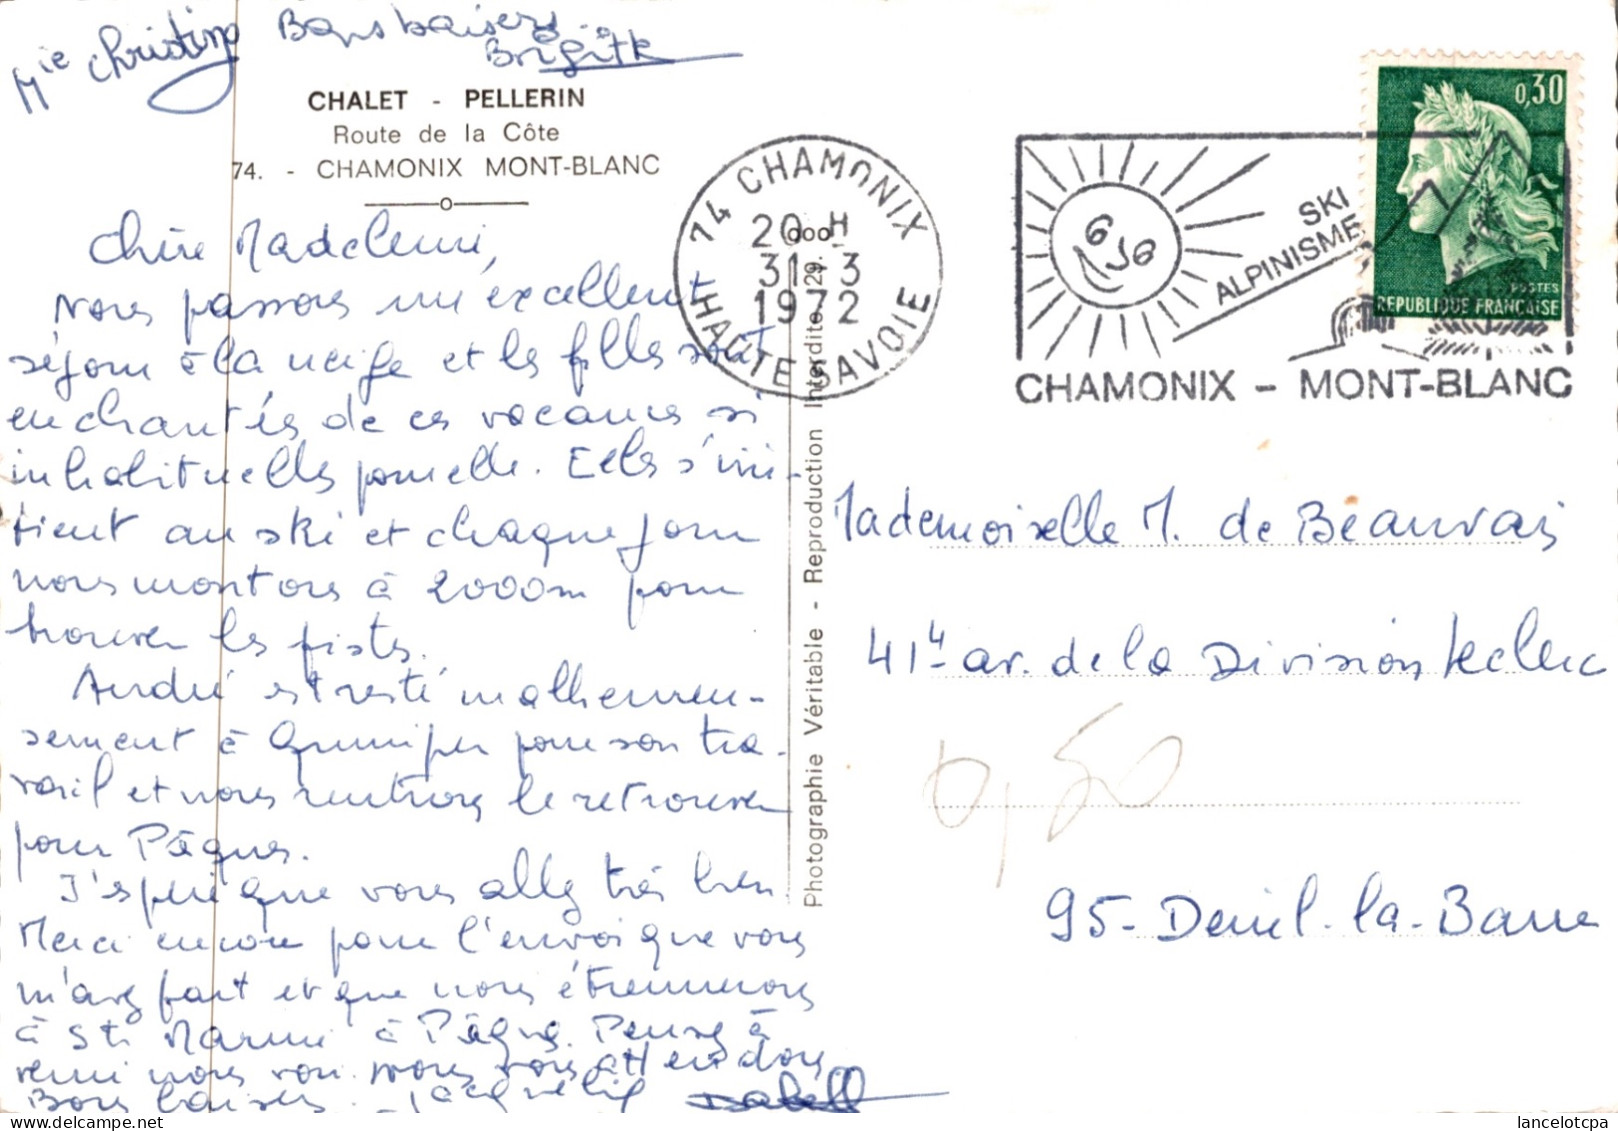 Mie Christine Bons baisers
Brigitte
CHALET - PELLERIN
Route de la Côte
74. - CHAMONIX MONT-BLANC
Chère Madeleine,
Nous passons un excellent
séjour à la neige et les filles sont
enchantés de ces vacances si
inhabituelles pour elle. Elles s'ini-
tient au ski et chaque jour
nous montons à 2000m pour
trouver les pistes.
André est resté malheureu-
sement à Quimper pour son tra-
vail et nous rentrons le retrouver
pour Pâques.
J'espère que vous allez très bien.
Merci encore pour l'envoi que vous
m'avez fait et que nous étrennerons
à Ste Marine à Pâques. Pensez à
venir nous voir. Nous vous attendons
Bons baisers. Jacqueline Isabelle
Photographie Véritable - Reproduction Interdite
29.
000
74 CHAMONIX
20 H
31 - 3
1972
HAUTE SAVOIE
SKI
ALPINISME
CHAMONIX - MONT-BLANC
0,30
POSTES
REPUBLIQUE FRANCAISE
Mademoiselle M. de Beauvais
41 4 av. de la Division Leclerc
0,50
95 - Deuil-la-Barre
www.lancelotcpa.com